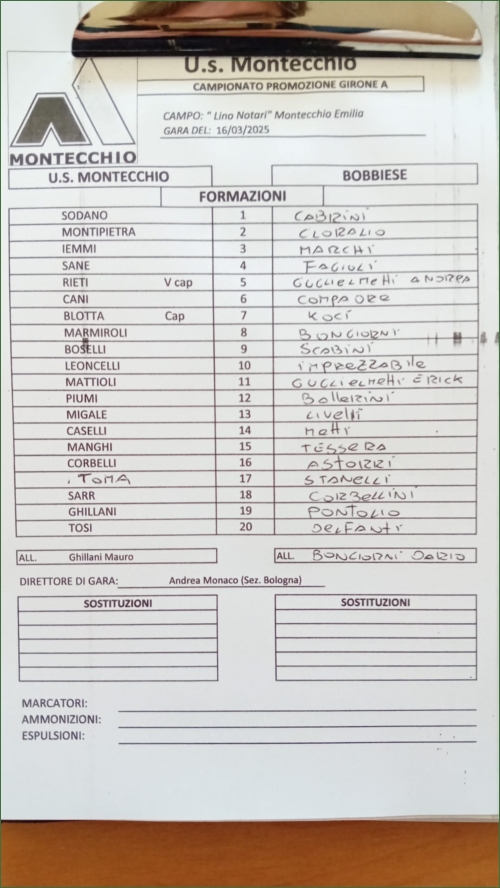 U.s. Montecchio
CAMPIONATO PROMOZIONE GIRONE A
CAMPO: " Lino Notari" Montecchio Emilia
GARA DEL: 16/03/2025
MONTECCHIO
U.S. MONTECCHIO BOBBIESE
FORMAZIONI
SODANO 1 CABRINI
MONTIPIETRA 2 CLORALIO
IEMMI 3 MARCHI
SANE 4 FAGIULI
RIETI V cap 5 GUGLIELMETTI ANDREA
CANI 6 COMPAORE
BLOTTA Cap 7 KOCI
MARMIROLI 8 BONGIORNI
BOSELLI 9 SCABINI
LEONCELLI 10 IMPREZZABILE
MATTIOLI 11 GUGLIELMETTI ERICK
PIUMI 12 BALLERINI
MIGALE 13 LIVELLI
CASELLI 14 METTI
MANGHI 15 TESSERA
CORBELLI 16 ASTORRI
TOMA 17 STANELLI
SARR 18 CORBELLINI
GHILLANI 19 PONTOLIO
TOSI 20 DELFANTI
ALL. Ghillani Mauro ALL. BONGIORNI DARIO
DIRETTORE DI GARA: Andrea Monaco (Sez. Bologna)
SOSTITUZIONI SOSTITUZIONI
MARCATORI:
AMMONIZIONI:
ESPULSIONI: